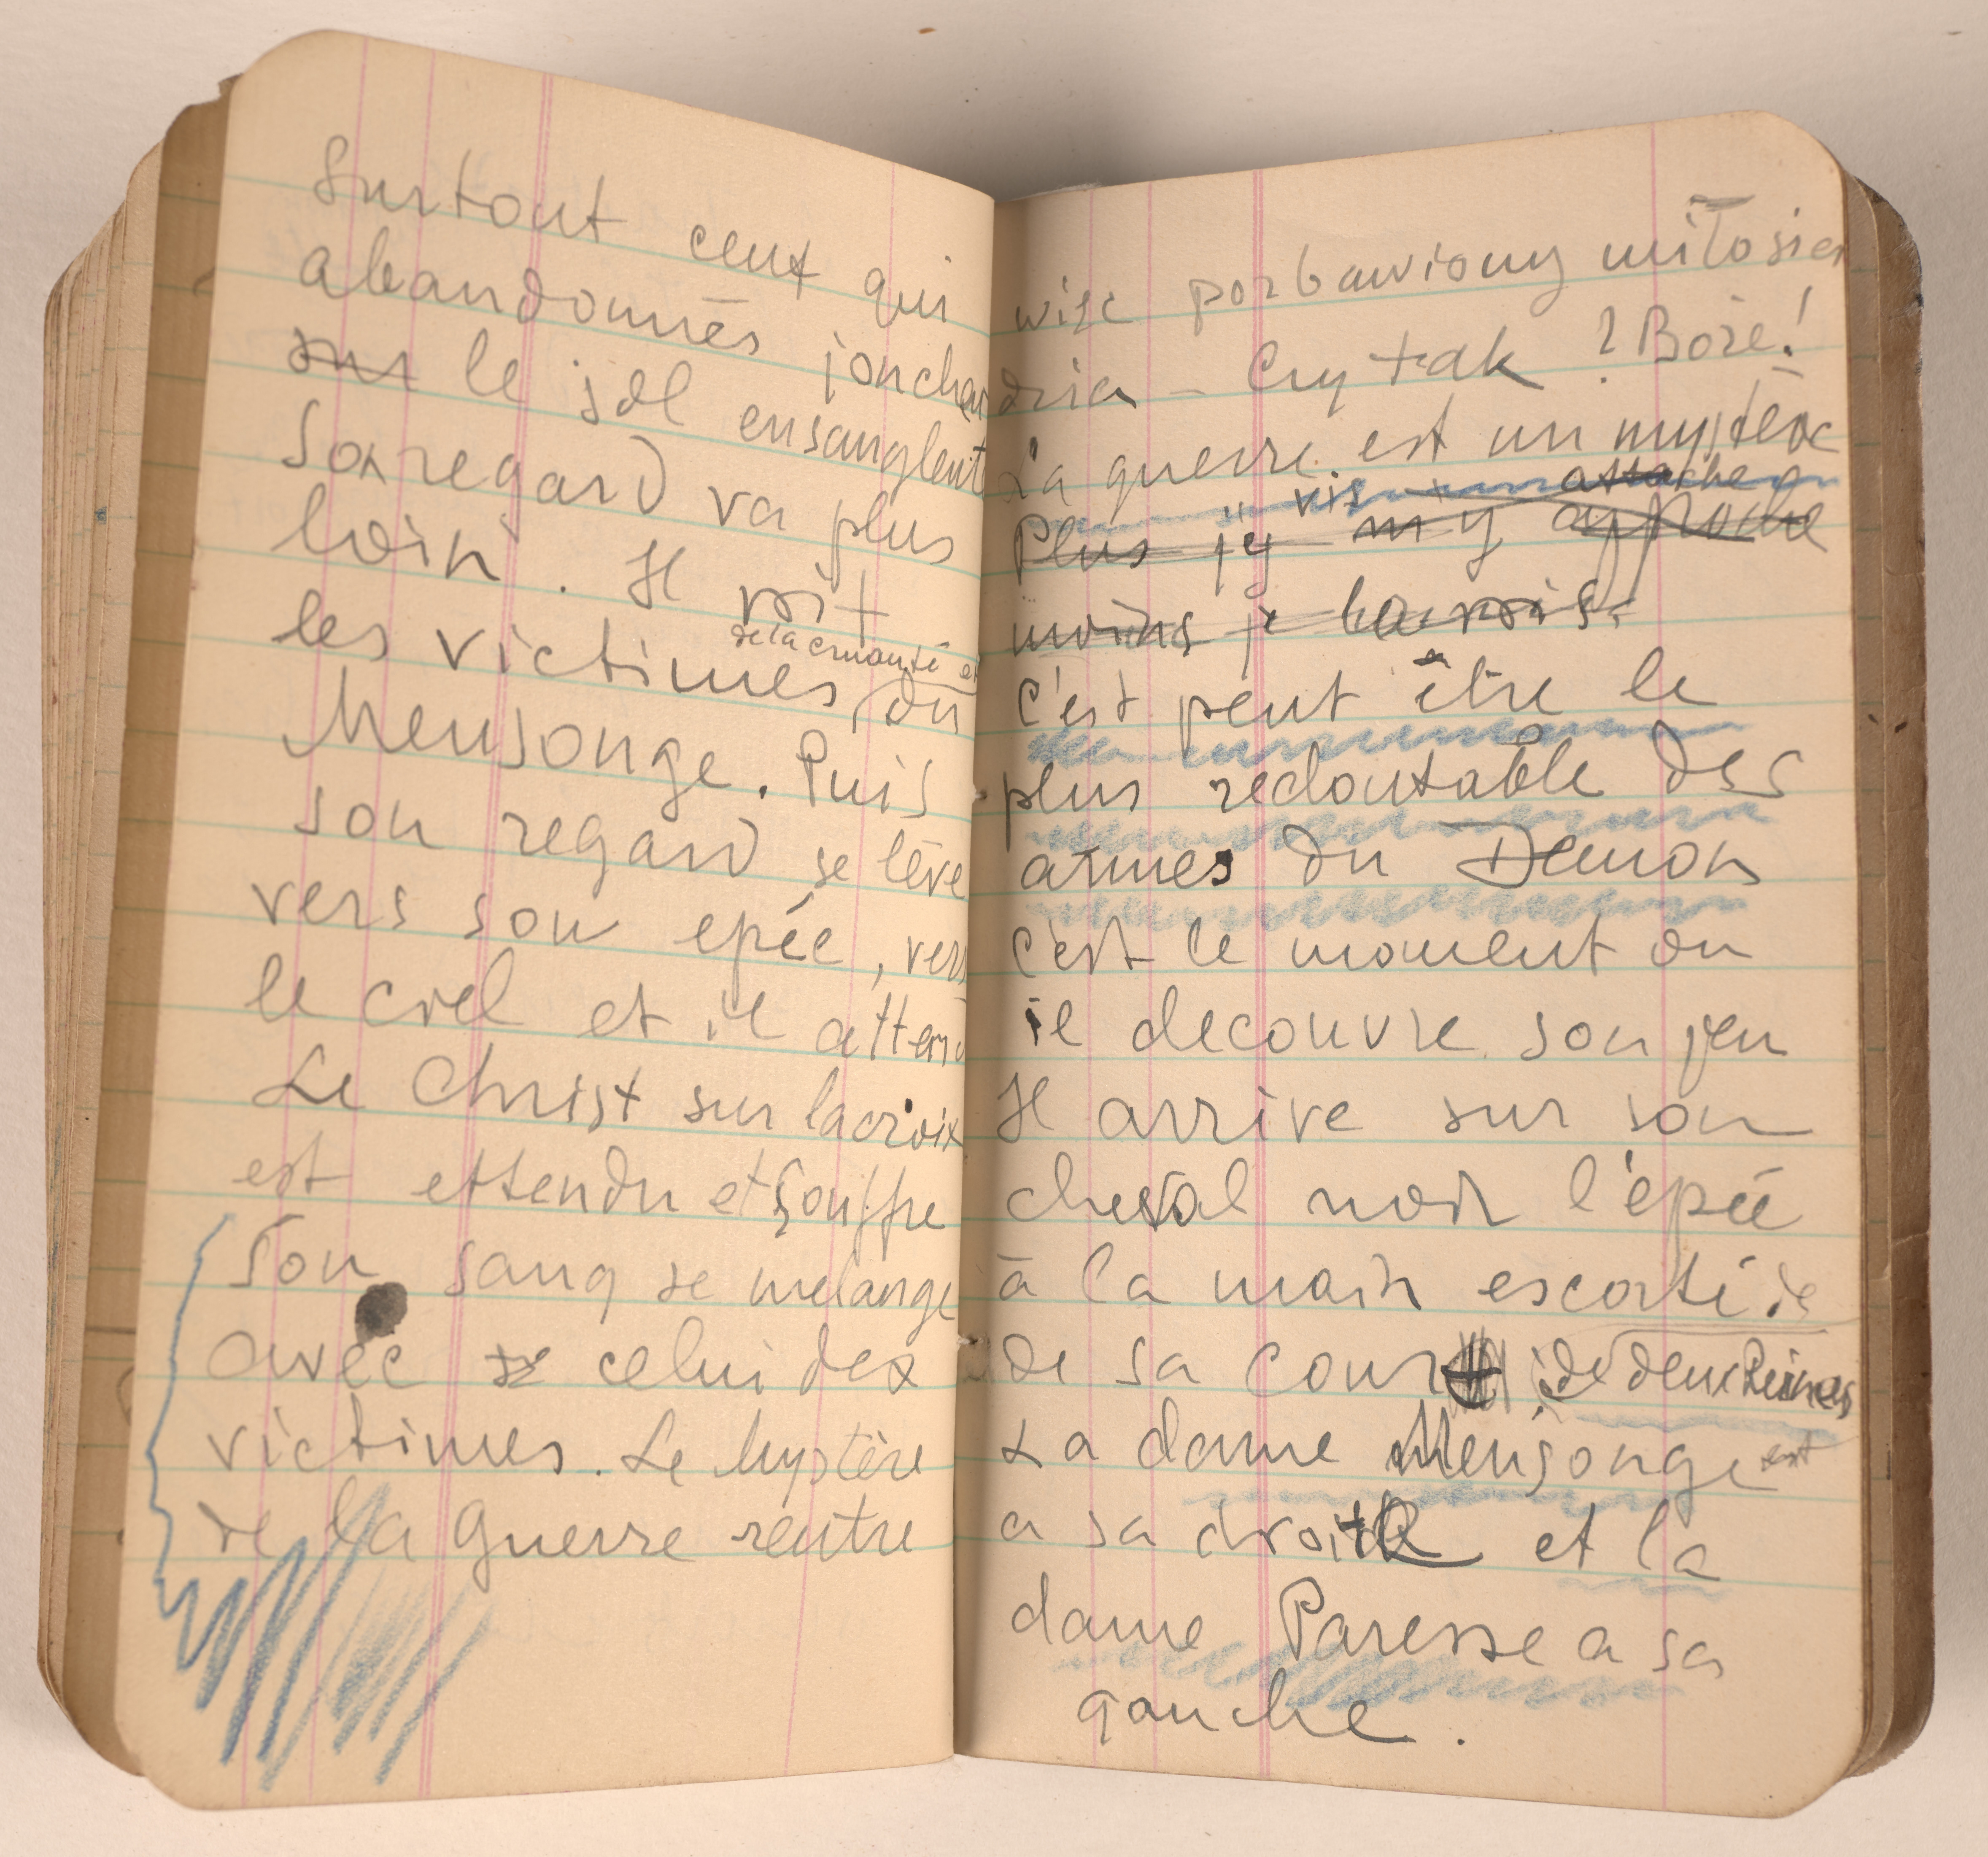 Surtout ceux qui
abandonnés jonchen
sur le sol ensanglent
Son regard va plus
loin. Il voit
de la cruauté et
les victimes du
Mensonge. Puis
son regard se lève
vers son epée, vers
le ciel et il attend
Le Christ sur la croix
est ettendu et souffre
Son sang se melange
avec celui des
victimes. Le Mystère
de la Guerre rentre
więc pozbawiony miłosier
dzia – Czy tak ? Boże!
La guerre est un mystère
vis attache
Plus j'y m'y approche
moins je la vois.
C'est peut être le
plus redoutable des
armes du Demon
C'est le moment ou
il decouvre son jeu
Il arrive sur son
cheval noir l'epée
à la main escorté de
de sa cour de deux Reines
La dame Mensonge est
a sa droite et la
dame Paresse a sa
gauche.